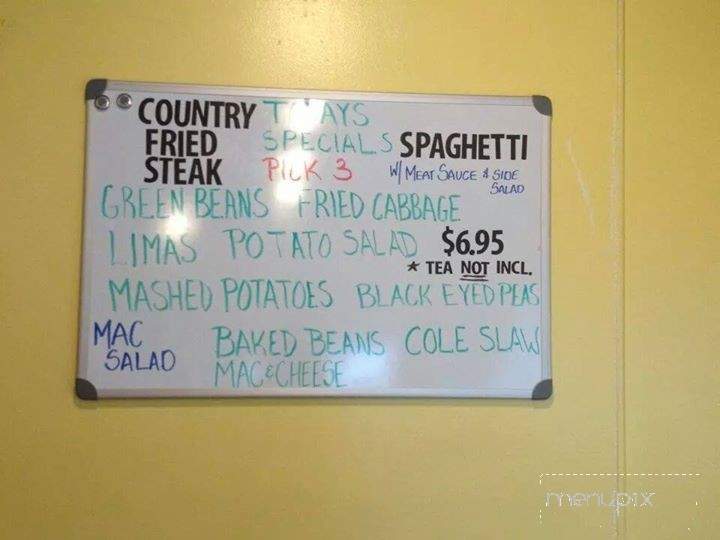 COUNTRY
FRIED
STEAK
SPECIALS
PICK 3
SPAGHETTI
W/ MEAT SAUCE & SIDE
SALAD
GREEN BEANS FRIED CABBAGE
LIMAS POTATO SALAD $6.95
* TEA NOT INCL.
MASHED POTATOES BLACK EYED PEAS
MAC
SALAD
BAKED BEANS COLE SLAW
MAC & CHEESE
menupix